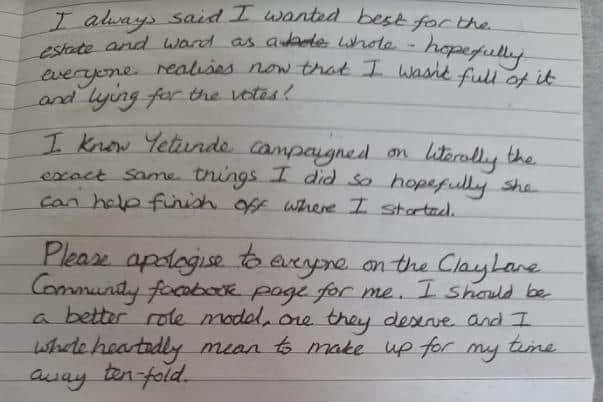 I always said I wanted best for the
estate and ward as a whole - hopefully
everyone realises now that I wasn't full of it
and lying for the votes!
I know Yetunde campaigned on literally the
excact same things I did so hopefully she
can help finish off where I started.
Please apologise to everyone on the Clay Lane
Community facebook page for me. I should be
a better role model, one they deserve and I
wholeheartedly mean to make up for my time
away ten-fold.